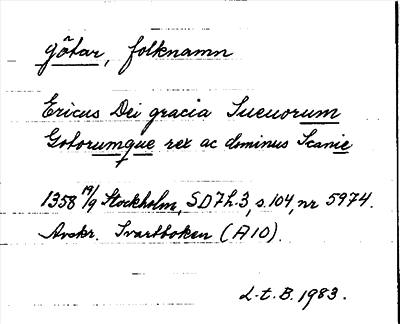 götar, folknamn
Ericus Dei gracia Sueuorum
Gotorumque rex ac dominus Scanie
1358 19/9 Stockholm, SD7h.3, s.104, nr 5974.
Avskr. Svartboken (A10).
L-t.B.1983.